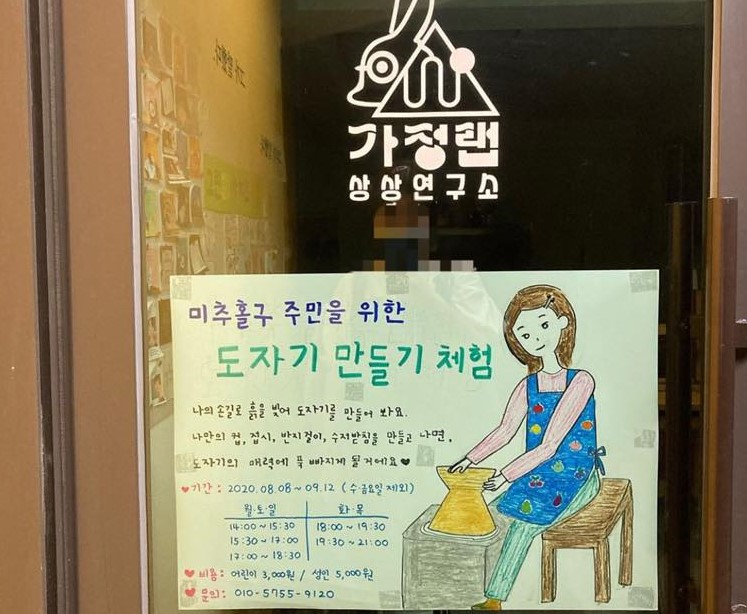 가정랩
상상연구소
미추홀구 주민을 위한
도자기 만들기 체험
나의 손길로 흙을 빚어 도자기를 만들어 봐요.
나만의 컵, 접시, 반지걸이, 수저받침을 만들고 나면,
도자기의 매력에 푹 빠지게 될거에요♥
♥기간 : 2020.08.08 ~ 09.12 (수·금요일 제외)
월·토·일 화·목
14:00 ~ 15:30 18:00 ~ 19:30
15:30 ~ 17:00 19:30 ~ 21:00
17:00 ~ 18:30
♥ 비용: 어린이 3,000원 / 성인 5,000원
♥ 문의: 010-5755-9120